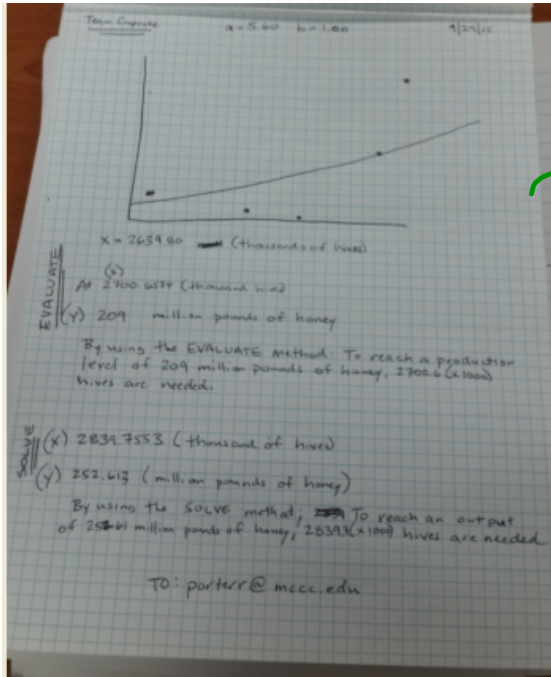 Team Cupcake a = 5.60 b = 1.00 9/29/15
x = 2639.80 (thousands of hives)
EVALUATE
(x)
At 2700.6574 (thousand hives)
(y) 209 million pounds of honey
By using the EVALUATE method: To reach a production
level of 209 million pounds of honey, 2700.6 (x1000)
hives are needed.
SOLVE
(x) 2839.7553 (thousand of hives)
(y) 252.613 (million pounds of honey)
By using the SOLVE method, To reach an output
of million pounds of honey, (x1000) hives are needed
TO: porterr@mccc.edu